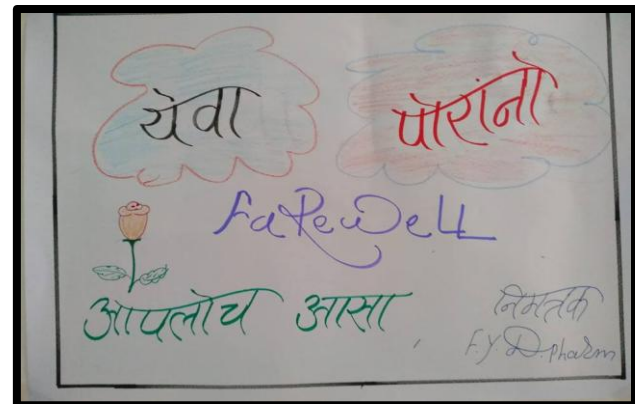 येवा पोरांनो
FaReWeLL
आपलोच आसा
निमत्रक
F.Y. D. Pharm